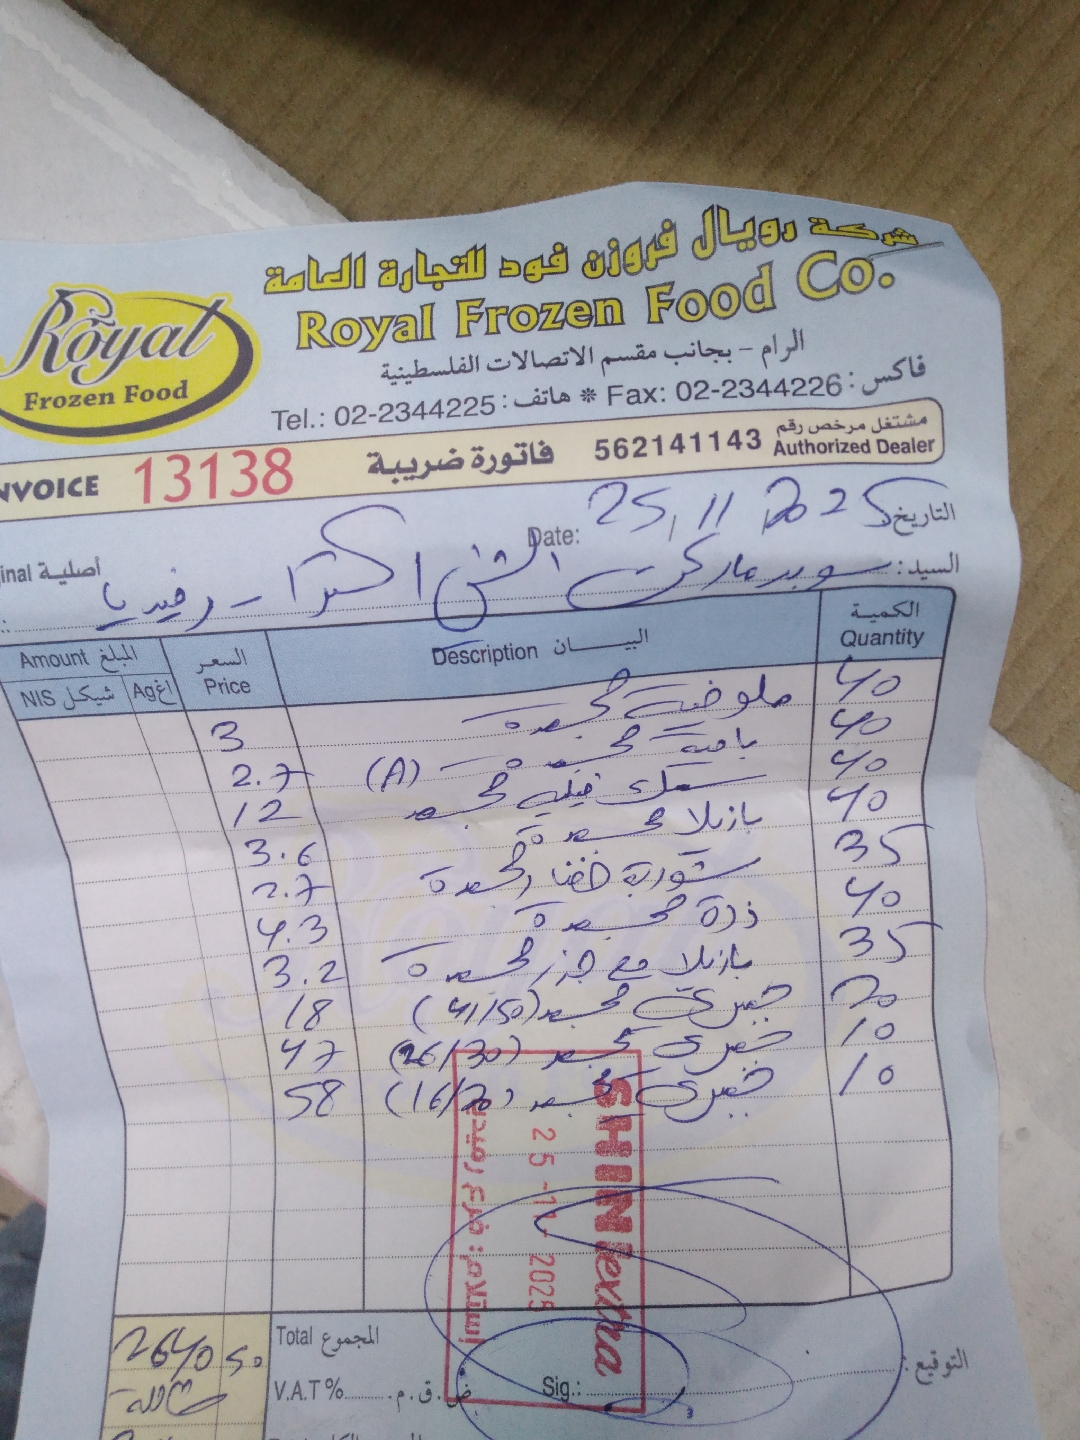 شركة رويال فروزن فود للتجارة العامة
Royal Frozen Food Co.
Royal
Frozen Food
الرام - بجانب مقسم الاتصالات الفلسطينية
Tel.: 02-2344225 هاتف: * Fax: 02-2344226 فاكس:
NVOICE 13138 فاتورة ضريبة 562141143 مشتغل مرخص رقم
Authorized Dealer
Date: 25/11/2025 التاريخ
inal أصلية
السيد: سوبرماركت الشني اكسترا - رفيديا
المبلغ Amount السعر Price البيان Description الكمية Quantity
شيكل NIS اغ Ag
40 ملوخية مجمدة 3
40 بامية مجمدة (A) 2.7
40 سمك فيليه مجمد 12
40 بازيلا مجمدة 3.6
35 شوربة خضار مجمدة 2.7
40 ذرة مجمدة 4.3
35 بازيلا مع جزر مجمدة 3.2
20 جمبري مجمد (41/50) 18
10 جمبري مجمد (26/30) 47
10 جمبري مجمد (16/20) 58
SHINI extra
25-11-2025
إستلام: فرع رفيديا
المجموع Total 2640 50
V.A.T% ض.ق.م.
Sig.: التوقيع: